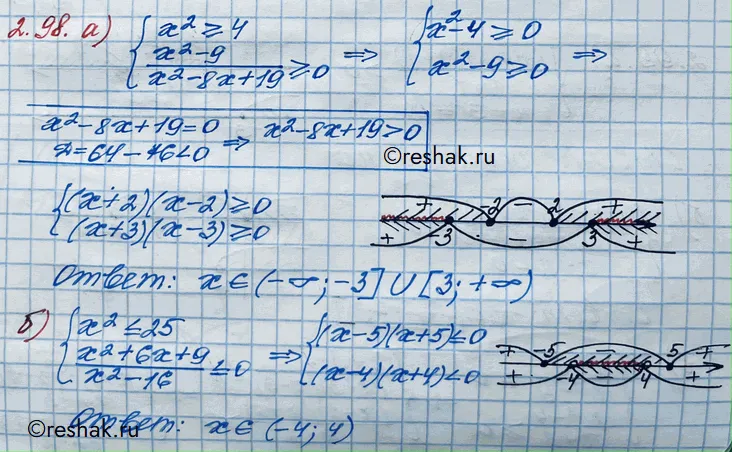 2.98. а) { x² ≥ 4
(x²-9)/(x²-8x+19) ≥ 0 ⇒ { x²-4 ≥ 0
x²-9 ≥ 0 ⇒
x²-8x+19=0
Д=64-76<0 ⇒ x²-8x+19>0
©reshak.ru
{ (x+2)(x-2) ≥ 0
(x+3)(x-3) ≥ 0
+ -2 - 2 +
+ -3 - 3 +
Ответ: x ∈ (-∞; -3] ∪ [3; +∞)
б) { x² ≤ 25
(x²+6x+9)/(x²-16) ≤ 0 ⇒ { (x-5)(x+5) ≤ 0
(x-4)(x+4) < 0
+ -5 - 5 +
+ -4 - 4 +
Ответ: x ∈ (-4; 4)
©reshak.ru